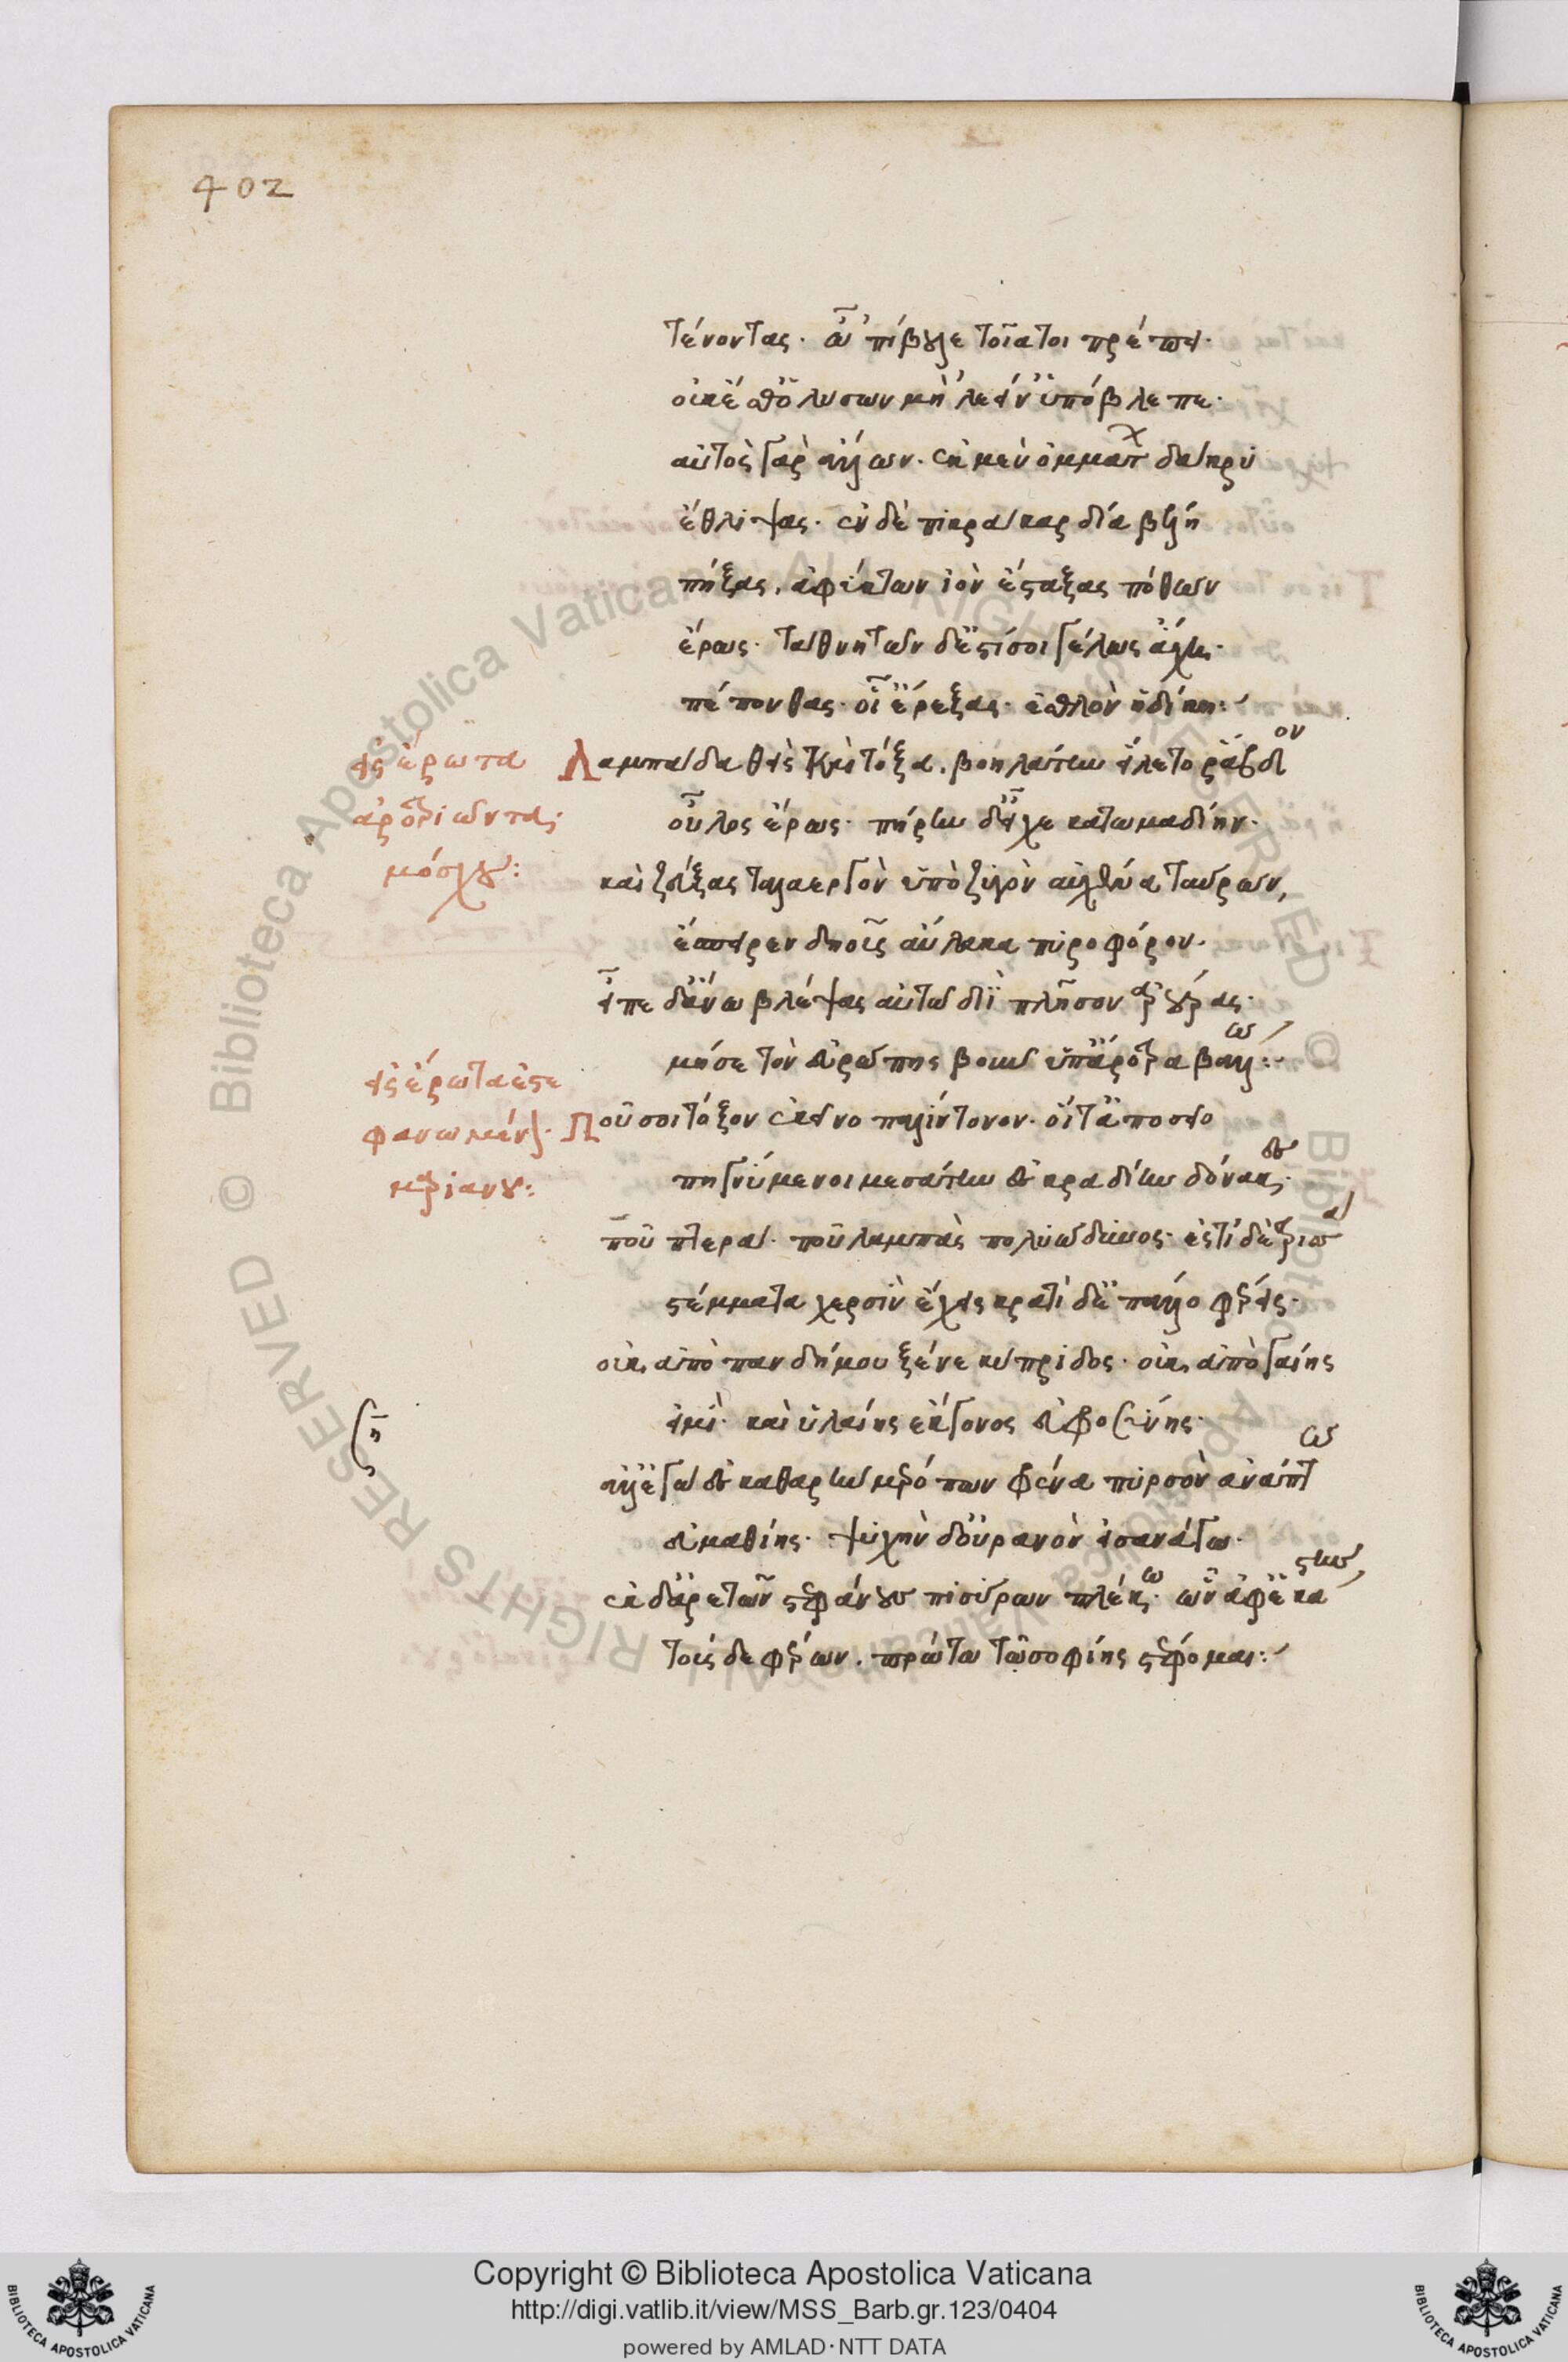 402
τένοντας. ὦ 'πίβουλε τοῖά τοι πρέπει.
οὐκ ἔσθ' ὁ λύσων μὴ 'λεείν' ὑπόβλεπε·
αὐτὸς γὰρ ἄλλων. ἐκ μὲν ὀμμάτων δάκρυ
ἔθλιψας. ἐν δὲ πικρὰ καρδία βέλη
πήξας. ἀφύκτων ἰὸν ἔσταξας πόθων
ἔρως. τὰ θνητῶν δ' ἐστί σοι γέλως ἄχη.
πέπονθας οἷ' ἔρεξας. ἐσθλὸν ἡ δίκη:
εἰς ἔρωτα
ἀροτριῶντα·
μόσχου:
Λαμπάδα θεὶς καὶ τόξα. βοηλάτην εἵλετο ῥάβδον
οὖλος ἔρως. πήρην δ' εἶχε κατωμαδίην.
καὶ ζεύξας ταλαεργὸν ὑπὸ ζυγὸν αὐχένα ταύρων,
ἔσπειρεν δηοῦς αὔλακα πυροφόρον.
εἶπε δ' ἄνω βλέψας αὐτῷ διΐ πλῆσον ἀρούρας.
μή σε τὸν εὐρώπης βοῦν ὑπ' ἄροτρα βάλω:
εἰς ἔρωτα ἐστε
φανωμένον·
μαριανοῦ:
Ποῦ σοι τόξον ἐκεῖνο παλίντονον. οἵ τ' ἀπὸ σεῖο
πηγνύμενοι μεσάτην ἐς κραδίην δόνακες.
ποῦ πτερά. ποῦ λαμπὰς πολυώδυνος. ἐς τί δὲ τρισσὰ
στέμματα χερσὶν ἔχεις κρατὶ δ' ἐπ' ἄλλο φέρεις.
οὐκ ἀπὸ πανδήμου ξένε κύπριδος. οὐκ ἀπὸ γαίης
εἰμὶ. καὶ ὑλαίης ἔκγονος εὐφροσύνης.
ἀλλ' ἐγὼ ἐς καθαρὴν μερόπων φρένα πυρσὸν ἀνάπτω
εὐμαθίης. ψυχὴν δ' οὐρανὸν εἰσανάγω.
ἐκ δ' ἀρετῶν στεφάνους πισύρων πλέκω. ὧν ἀφ' ἑκάστην
τούσδε φέρων. πρώτῳ τῷ σοφίης στέφομαι:
Copyright © Biblioteca Apostolica Vaticana
http://digi.vatlib.it/view/MSS_Barb.gr.123/0404
powered by AMLAD·NTT DATA